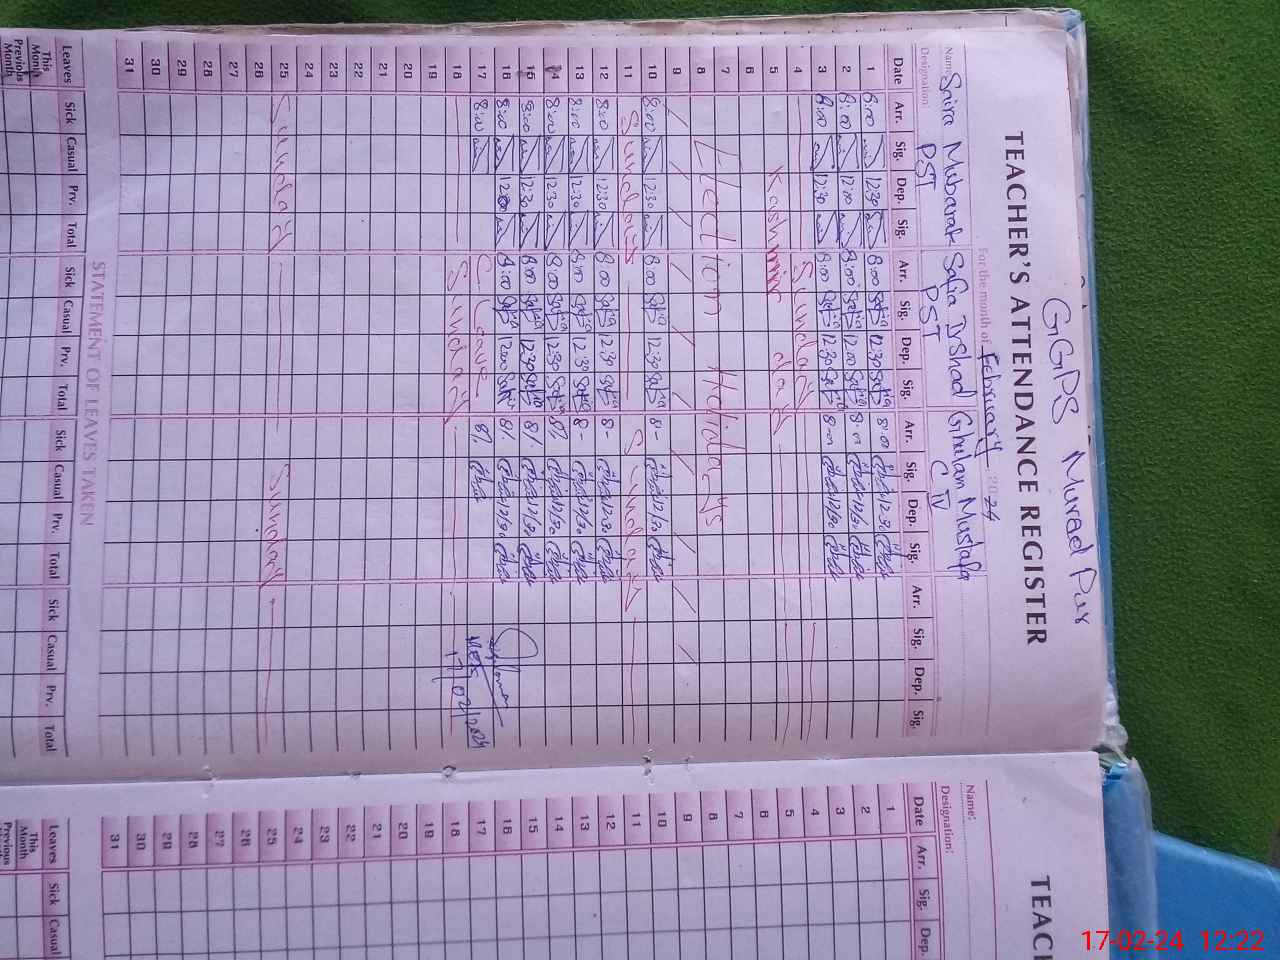 GGPS Murad Pur
TEACHER'S ATTENDANCE REGISTER
For the month of February 2024
Name: Saira Mubarak Safia Irshad Ghulam Mustafa
Designation: PST PST C IV
Date Arr. Sig. Dep. Sig. Arr. Sig. Dep. Sig. Arr. Sig. Dep. Sig. Arr. Sig. Dep. Sig.
1 8:00 12:30 8:00 Safia 12:30 Safia 8:00 12:30
2 8:00 12:00 8:00 Safia 12:00 Safia 8:00 12/30
3 8:00 12:30 8:00 Safia 12:30 Safia 8:00 12/30
4 Sunday
5 Kashmir day
6
7 Election Holidays
8
9
10 8:00 12:30 8:00 Safia 12:30 Safia 8- 12/30
11 Sunday Sunday
12 8:00 12:30 8:00 Safia 12:30 Safia 8- 12:30
13 8:00 12:30 8:00 Safia 12:30 Safia 8- 12/30
14 8:00 12:30 8:00 Safia 12:30 Safia 8/. 12/30
15 8:00 12:30 8:00 Safia 12:30 Safia 8/. 12/30
16 8:00 12:00 8:00 Safia 12:00 Safia 8/. 12/30
17 8:00 C. Leave 8/.
18 Sunday
17/02/2024
19
20
21
22
23
24
25 Sunday Sunday
26
27
28
29
30
31
STATEMENT OF LEAVES TAKEN
Leaves Sick Casual Prv. Total Sick Casual Prv. Total Sick Casual Prv. Total Sick Casual Prv. Total
This Month
Previous Month
TEACH
Name:
Designation:
Date Arr. Sig. Dep.
1
2
3
4
5
6
7
8
9
10
11
12
13
14
15
16
17
18
19
20
21
22
23
24
25
26
27
28
29
30
31
Leaves Sick Casual
This Month
Previous Month
17-02-24 12:22